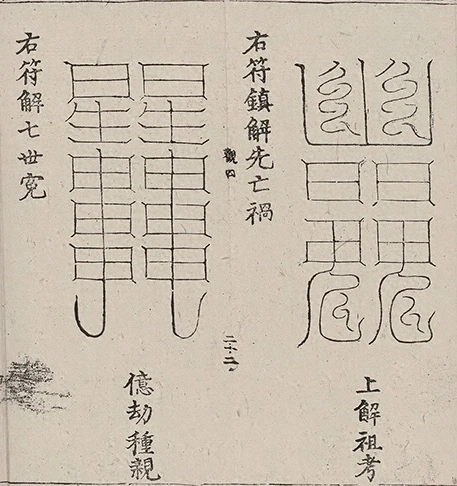 上解祖考
右符鎮解先亡禍
觀四
二十二
億劫種親
右符解七世冤